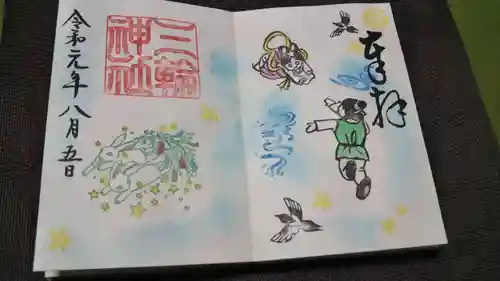 奉拝
三輪
神社
令和元年八月五日